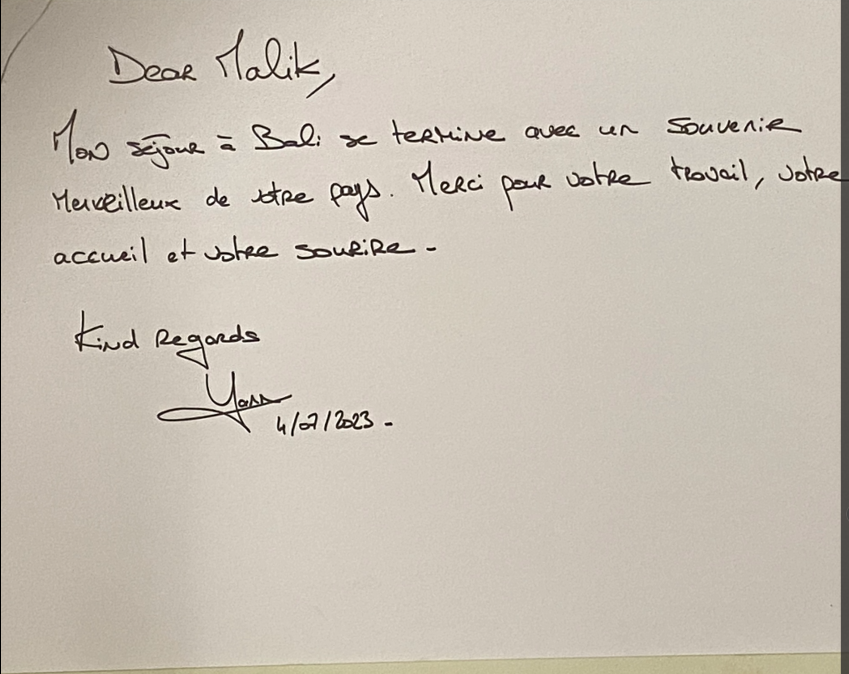 Dear Malik,
Mon séjour à Bali se termine avec un souvenir
merveilleux de votre pays. Merci pour votre travail, votre
accueil et votre sourire -
Kind Regards
Yann
4/07/2023 -